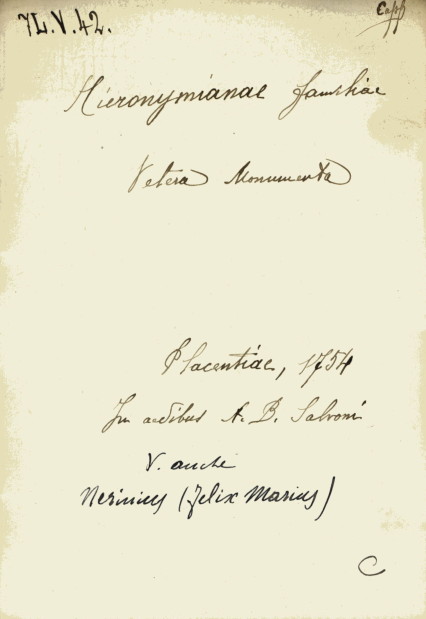 7L.V.42.
Capp
Hieronymianae familiae
Vetera Monumenta
Placentiae, 1754
In aedibus A. B. Salvoni
V. anche
Nerinius (Felix Marius)
C